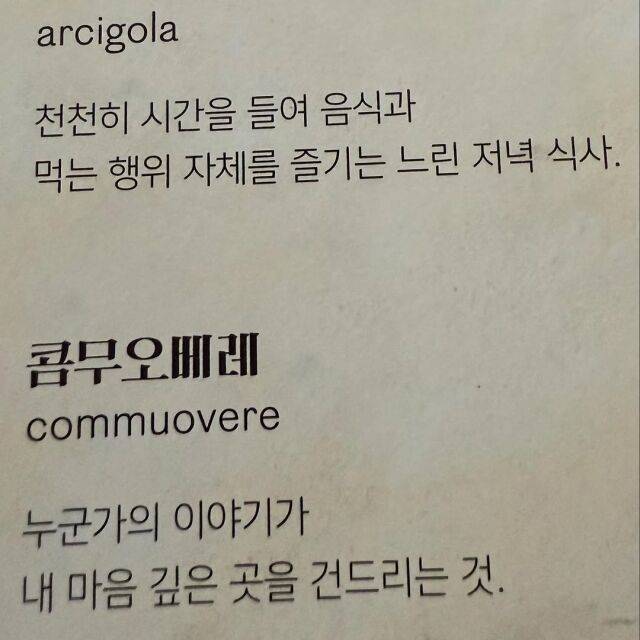 arcigola
천천히 시간을 들여 음식과
먹는 행위 자체를 즐기는 느린 저녁 식사.
콤무오베레
commuovere
누군가의 이야기가
내 마음 깊은 곳을 건드리는 것.